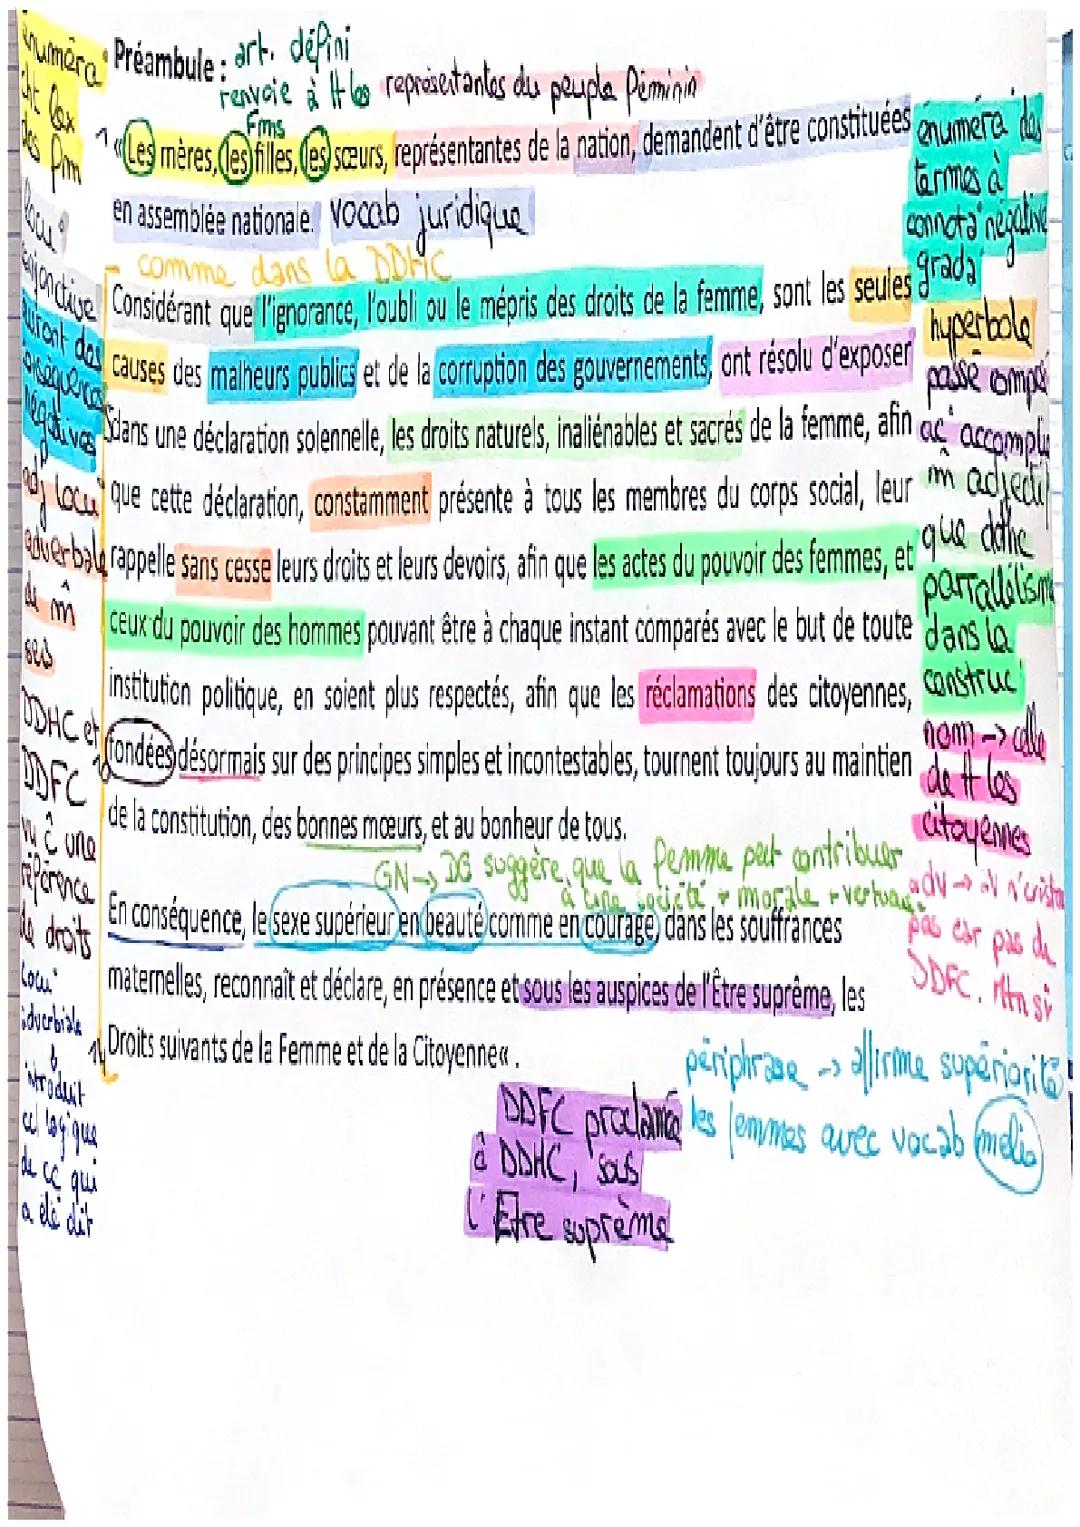 énuméra°
Préambule : art. défini
renvoie à tt les
Fms
représentantes du peuple féminin
cht lex
des fm
« Les mères, les filles, les sœurs, représentantes de la nation, demandent d'être constituées
en assemblée nationale. vocab juridique
énuméra° des
termes à
connota° négative
grada°
locu°
conjonctive
comme dans la DDHC
Considérant que l'ignorance, l'oubli ou le mépris des droits de la femme, sont les seules
hyperbole
auront des
conséquences
négatives
causes des malheurs publics et de la corruption des gouvernements, ont résolu d'exposer
passé composé
ac° accomplie
dans une déclaration solennelle, les droits naturels, inaliénables et sacrés de la femme, afin
m̂ adjectif
que ddhc
adj locu°
adverbale
de m̂
sens
que cette déclaration, constamment présente à tous les membres du corps social, leur
rappelle sans cesse leurs droits et leurs devoirs, afin que les actes du pouvoir des femmes, et
parrallélisme
dans la
construc°
ceux du pouvoir des hommes pouvant être à chaque instant comparés avec le but de toute
institution politique, en soient plus respectés, afin que les réclamations des citoyennes,
nom -> celle
de tt les
citoyennes
DDHC et
DDFC
vu ĉ une
référence
de droits
fondées désormais sur des principes simples et incontestables, tournent toujours au maintien
de la constitution, des bonnes mœurs, et au bonheur de tous.
GN -> DG suggère que la femme peut contribuer
à une société + morale + vertueuse
adv -> av n'exista
pas car pas de
DDFC. Mtn si
En conséquence, le sexe supérieur en beauté comme en courage, dans les souffrances
maternelles, reconnaît et déclare, en présence et sous les auspices de l'Être suprême, les
Droits suivants de la Femme et de la Citoyenne« .
Locu°
adverbiale
introduit
logique
de ce qui
a été dit
périphrase -> affirme supériorité
les femmes avec vocab mélio
DDFC proclamée
ĉ DDHC, sous
l'Être suprême